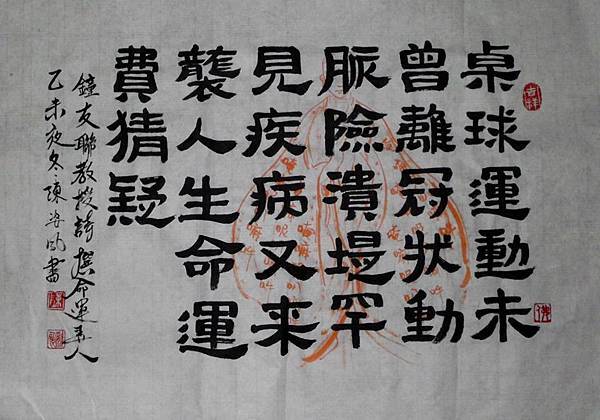 吉祥
桌球運動未
曾離冠狀動
脈險潰堤罕
見疾病又来
襲人生命運
費猜疑
鐘友聯教授詩撰命運弄人
乙未夜冬陳姿書